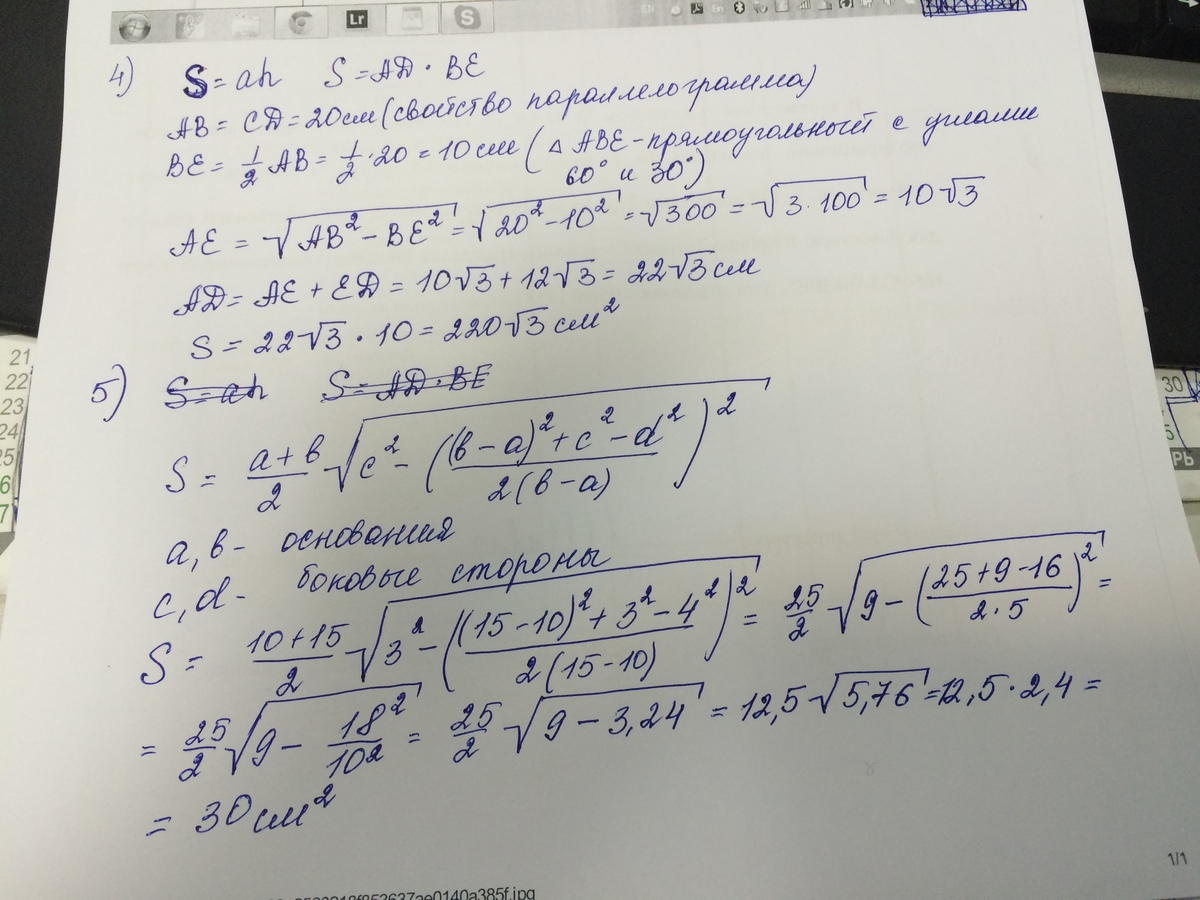 Lr
S
EN
4) S = ah S = AD · BE
AB = CD = 20 см (свойство параллелограмма)
BE = 1/2 AB = 1/2 · 20 = 10 см (△ ABE - прямоугольный с углами
60° и 30°)
AE = √(AB² - BE²) = √(20² - 10²) = √300 = √(3 · 100) = 10√3
AD = AE + ED = 10√3 + 12√3 = 22√3 см
S = 22√3 · 10 = 220√3 см²
5) S = ah S = AD · BE
S = (a + b)/2 √(c² - (((b - a)² + c² - d²)/(2(b - a)))²)
a, b - основания
c, d - боковые стороны
S = (10 + 15)/2 √(3² - (((15 - 10)² + 3² - 4²)/(2(15 - 10)))²) = 25/2 √(9 - ((25 + 9 - 16)/(2 · 5))²) =
= 25/2 √(9 - 18²/10²) = 25/2 √(9 - 3,24) = 12,5 √5,76 = 12,5 · 2,4 =
= 30 см²
21
22
23
24
25
6
7
30
5
РЬ
1/1